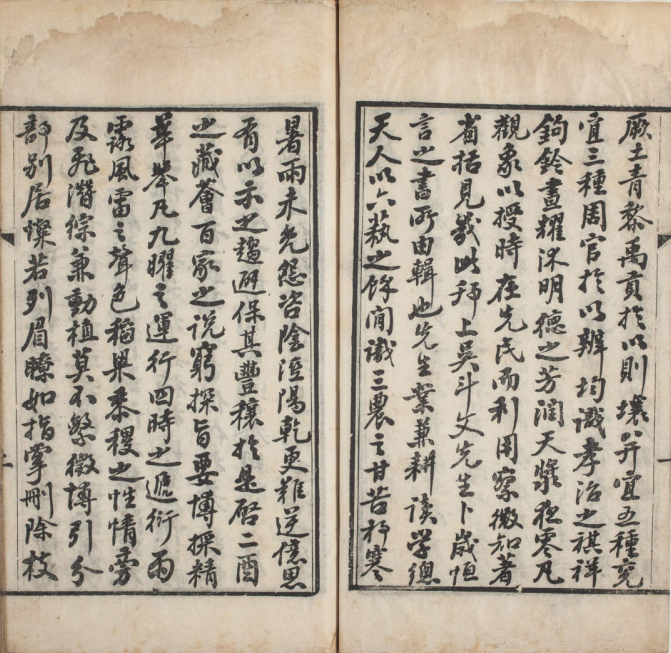 厥土青黎禹貢於以則壤并宜五種兖
宜三種周官於以辨均識孝治之祺祥
鉤鈐晝耀沐明德之芳潤天漿夜零凡
觀象以授時在先民而利用察微知著
省括見幾此拜上吳斗文先生卜歲恒
言之書所由輯也先生業兼耕讀学總
天人以六蓺之餘閒識三農之甘苦祁寒
暑雨未免怨咨陰淫陽乾更難逆億思
有以示之趨避保其豐穰於是啓二酉
之藏薈百家之说窮探旨要博採精
華举凡九曜之運行四時之遞衍雨
露風雷之聲色稻果黍稷之性情旁
及飛潛綜兼動植莫不繁徵博引分
部别居燦若列眉瞭如指掌刪除枝